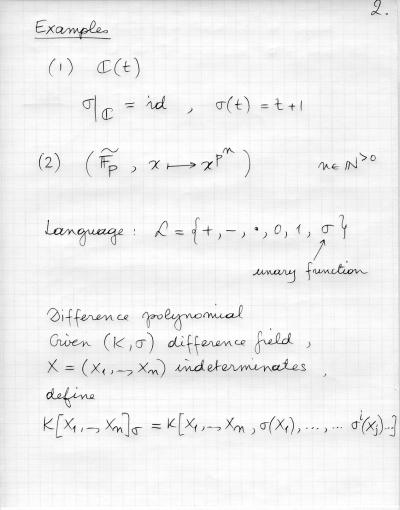 2.
Examples
(1) ℂ(t)
σ|ℂ = id , σ(t) = t+1
(2) (𝔽̃ₚ , x ⟼ x^{pⁿ}) n ∈ ℕ^{>0}
Language : ℒ = {+, −, ·, 0, 1, σ}
unary function
Difference polynomial
Given (K, σ) difference field ,
X = (X₁, ..., Xₙ) indeterminates ,
define
K[X₁, ..., Xₙ]_σ = K[X₁, ..., Xₙ, σ(X₁), ..., ... σⁱ(Xⱼ)...]